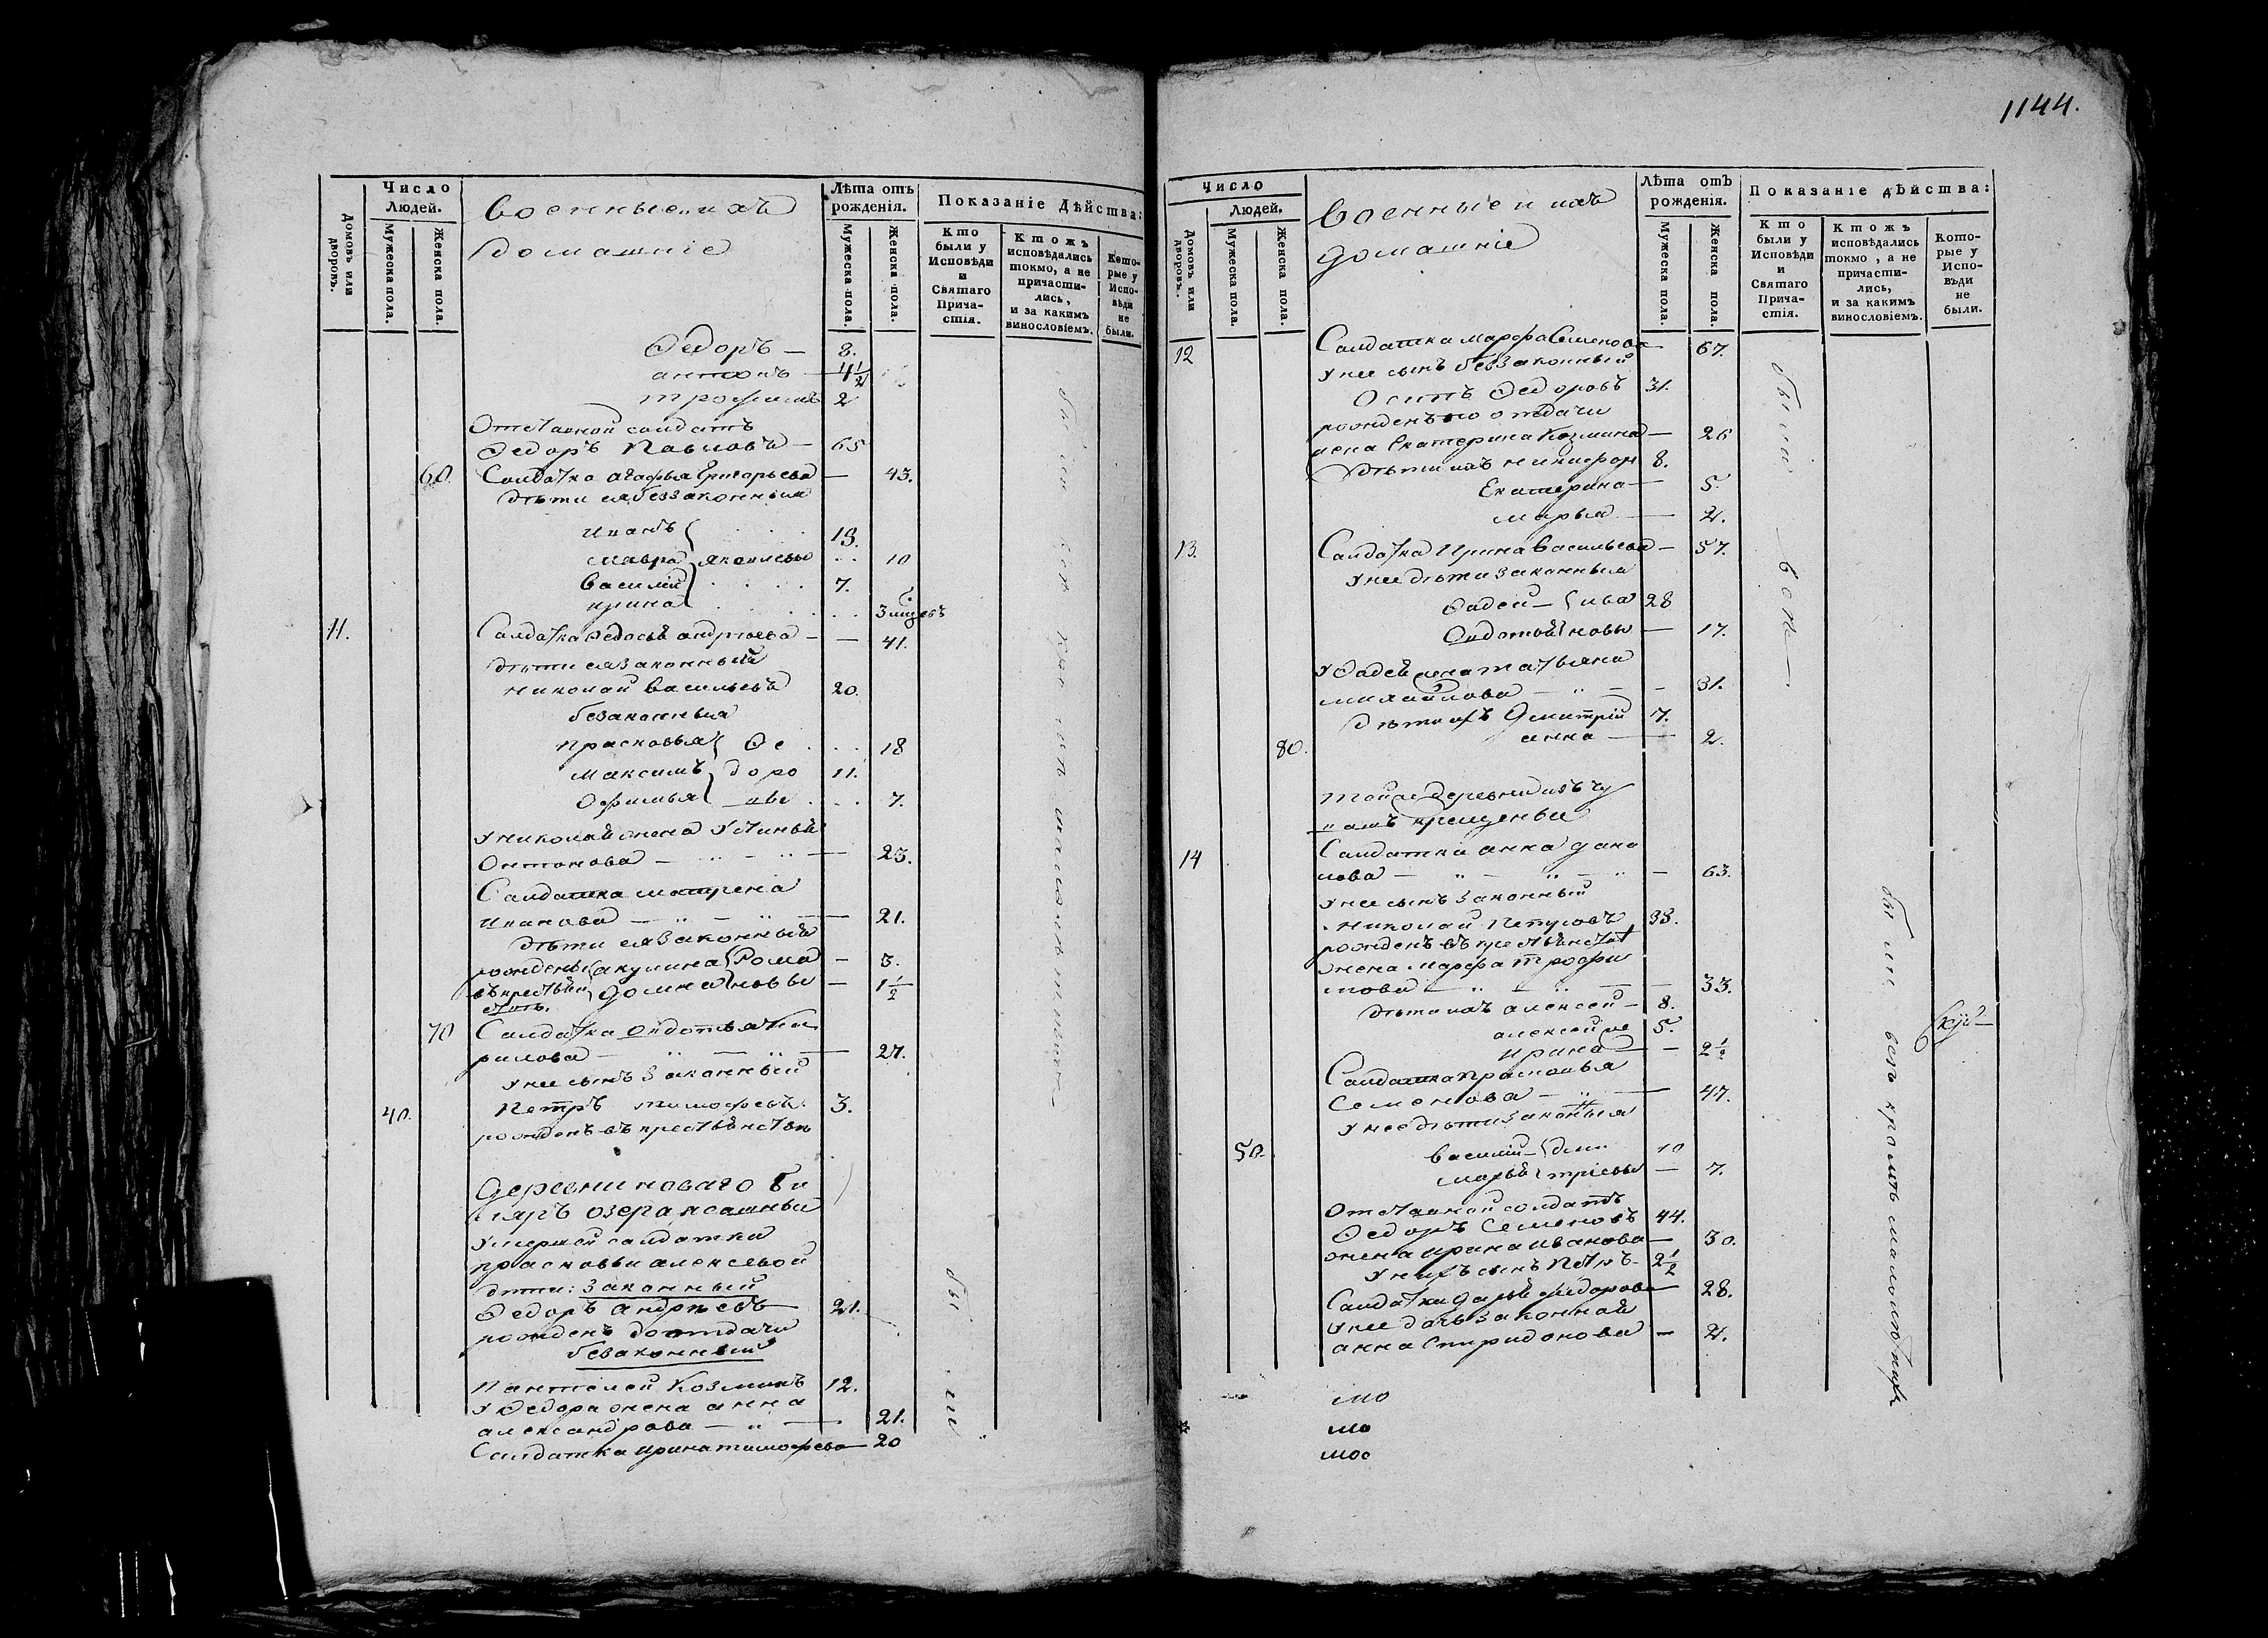 1144.
Число
Людей.
Домовъ или дворовъ.
Мужеска пола.
Женска пола.
военные и ихъ
домашніе
Лѣта отъ
рожденія.
Мужеска пола.
Женска пола.
Показаніе Дѣйства:
Кто
были у
Исповѣди
и
Святаго
Прича-
стія.
Ктожъ
исповѣдались
токмо, а не
причасти-
лись,
и за какимъ
винословіемъ.
Кото-
рые у
Испо-
вѣди
не
были.
Ѳедоръ — 8.
антонъ — 4 1/2
трофимъ 2
Отставной салдатъ
Ѳедоръ Павловъ — 65
60. Салдатка агафья Григорьева — 43.
дѣти ея беззаконныя
Иванъ 13.
мавра яковлевы 10
Василій 7.
ирина 3
11. Салдатка Ѳедосья андреева — 41.
дѣти ея законный
николай васильевъ 20.
безаконныя
прасковья Ѳе 18
максимъ доро 11.
Офимья вы 7.
У николая жена Устинья
Онтонова — 23.
Салдатка матрена
иванова — 21.
дѣти ея законныя
рождены акулина Рома — 3.
въ крестьян домна новы — 1 1/2
ствѣ.
70 Салдатка овдотья Ки
рилова — 27.
У нее сынъ законный
40. Петръ тимофеевъ 3.
рожденъ въ крестьянствѣ
деревни новаго
озера ясашныя
Умершей салдатки
прасковьи алексевой
дѣти: законный
Ѳедоръ андреевъ 21.
рожденъ до отдачи
безаконный
Пантелей Козминъ 12.
У Ѳедора жена анна
александрова — 21.
Салдатка ирина тимофева — 20
были
Число
Людей.
Домовъ или дворовъ.
Мужеска пола.
Женска пола.
Военные и ихъ
домашніе
Лѣта отъ
рожденія.
Мужеска пола.
Женска пола.
Показаніе дѣйства:
Кто
были у
Исповѣди
и
Святаго
Прича-
стія.
Ктожъ
исповѣдались
токмо, а не
причасти-
лись,
и за какимъ
винословіемъ.
Кото-
рые у
Испо-
вѣди
не
были.
12 Салдатка марфа Семенова — 67.
У нее сынъ беззаконный
Осипъ Ѳедоровъ 31.
рожденъ по отдачи
жена Екатерина Козмина — 26
дѣти ихъ никифоръ 8.
Екатерина — 5.
марья — 2.
13. Салдатка Ирина Васильева — 57.
У нее дѣти законныя
Фадей — ива 28
Овдотья новы — 17.
У Фадея жена татьяна
михайлова — 31.
дѣти ихъ Дмитрій 7.
80. анна — 2.
были все
той же деревни изъ чу
вашъ крещены
14 Салдатка анна дани
лова — 63.
У нее сынъ законный
николай Петровъ 38.
рожденъ въ крестьянствѣ
жена марфа трофи
мова — 33.
дѣти ихъ алексей — 8.
алексей же 5.
ирина — 2 1/2
Салдатка прасковья
Семенова — 47.
У нее дѣти законныя
50. василій — дми 10
марья тріевы — 7.
Отставной солдатъ
Ѳедоръ Семеновъ 44.
жена ирина иванова — 30.
У нихъ сынъ Петръ 2 1/2
Салдатка дарья федорова — 28.
У нее дочь законная
анна Спиридонова — 2.
были все кромѣ малолѣтнихъ
мо
мо
моо